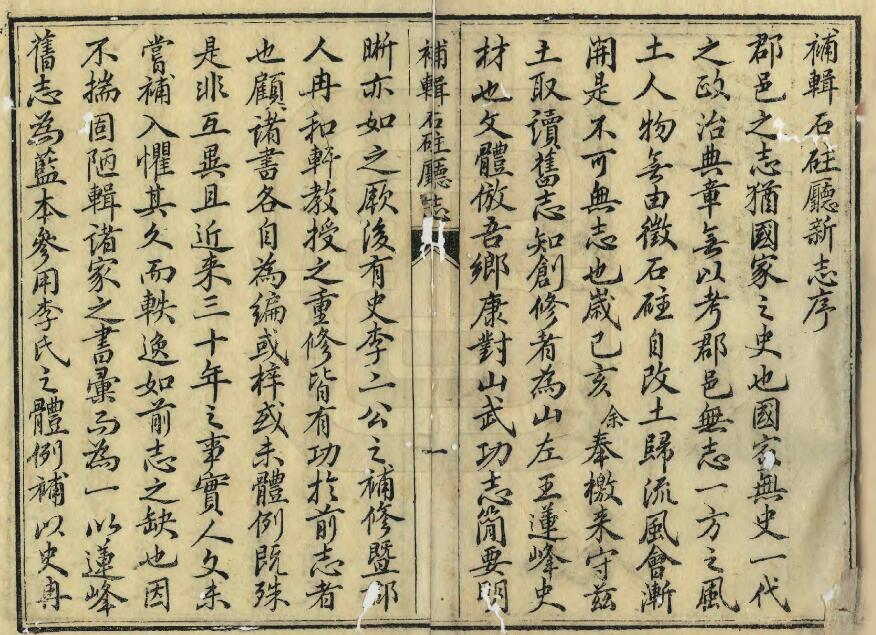 補輯石砫廳新志序
郡邑之志猶國家之史也國家無史一代
之政治典章無以考郡邑無志一方之風
土人物無由徵石砫自改土歸流風會漸
開是不可無志也歲己亥余奉檄来守茲
土取讀舊志知創修者為山左王蓮峰史
材也文體倣吾鄉康對山武功志簡要明
補輯石砫廳志
一
晰亦如之厥後有史李二公之補修暨郡
人冉和軒教授之重修皆有功於前志者
也顧諸書各自為編或梓或未體例既殊
是非互異且近来三十年之事實人文未
嘗補入懼其久而軼逸如前志之缺也因
不揣固陋輯諸家之書彙而為一以蓮峰
舊志為藍本參用李氏之體例補以史冉